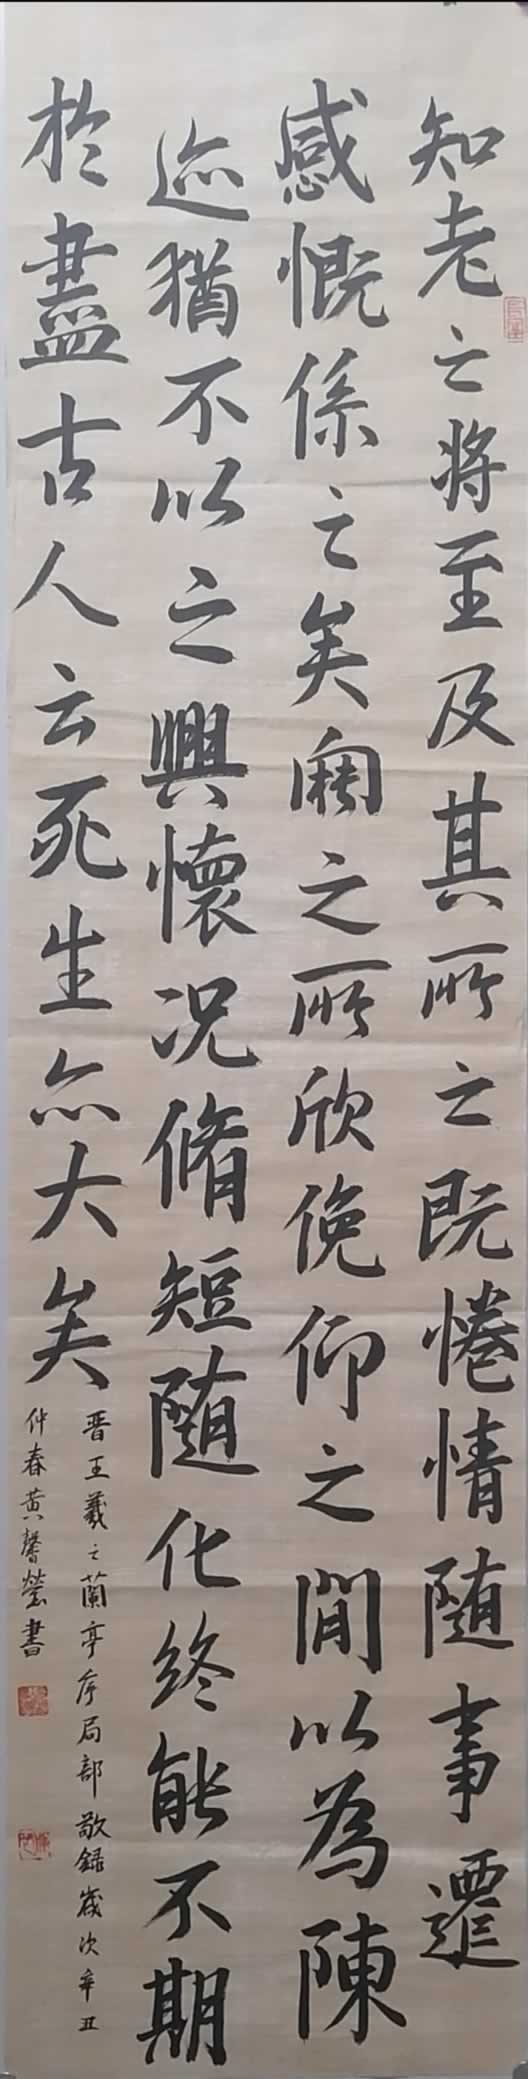 知老之將至及其所之既惓情随事遷
感慨係之矣向之所欣俛仰之閒以為陳
迹猶不以之興懷况脩短随化終能不期
於盡古人云死生亦大矣
晋王羲之蘭亭序局部敬録歲次辛丑
仲春黄馨瑩書